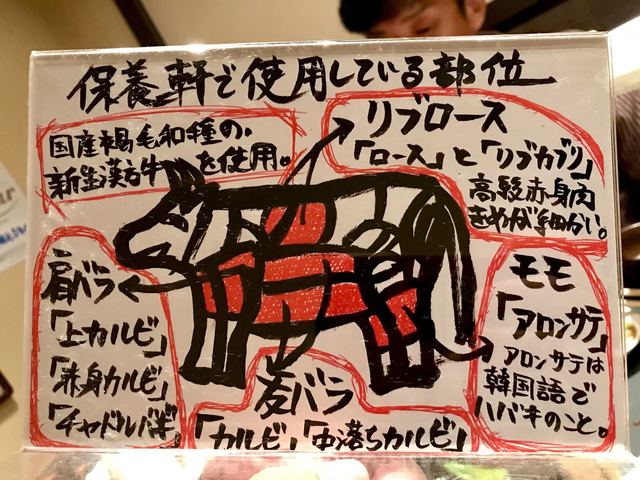 保養軒で使用している部位
国産褐毛和種の、
新生漢方牛を使用。
リブロース
「ロース」と「リブカブリ」
高級赤身肉
きめが細かい。
肩バラ
「上カルビ」
「赤身カルビ」
「チャドルバギ」
友バラ
「カルビ」「中落ちカルビ」
モモ
「アロンサテ」
アロンサテは
韓国語で
ハバキのこと。